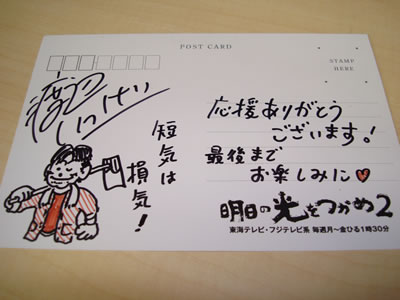 POST CARD
STAMP
HERE
渡辺
いっけい
短気は
損気!
応援ありがとう
ございます!
最後まで
お楽しみに♥
明日の光をつかめ2
東海テレビ・フジテレビ系 毎週月～金ひる1時30分